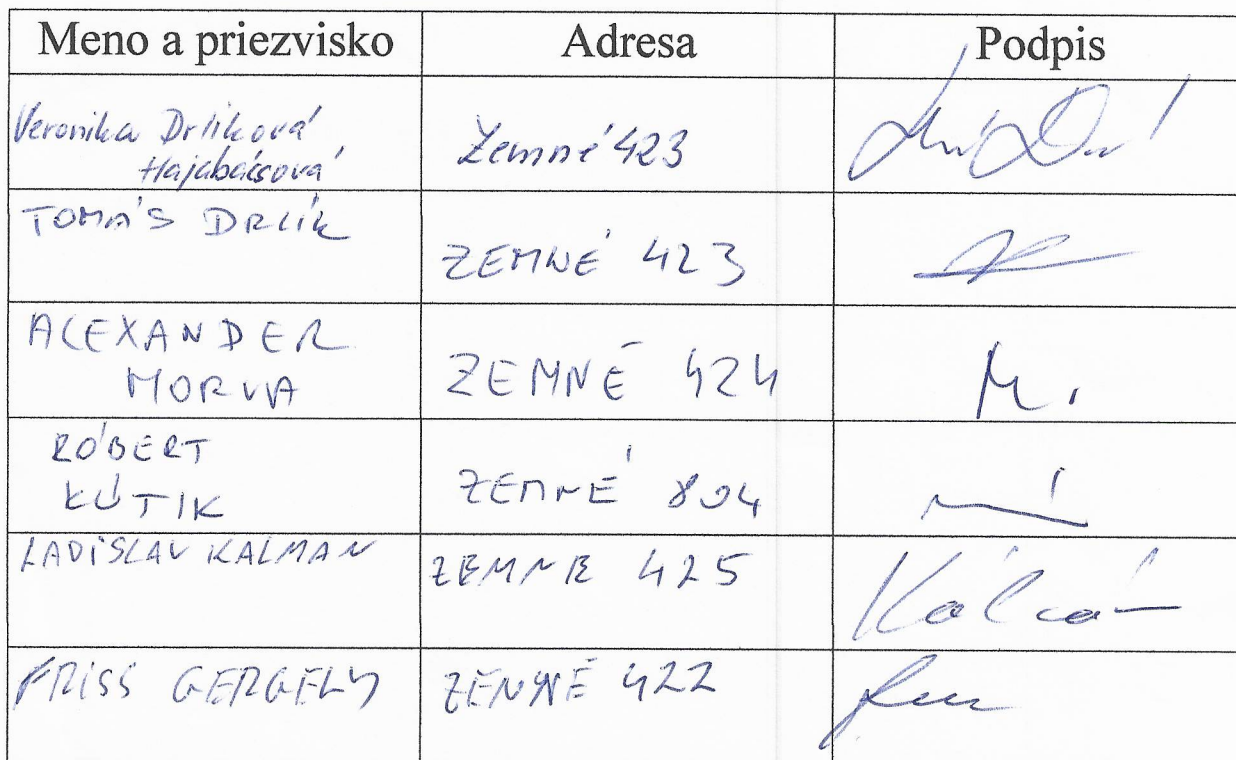 Meno a priezvisko Adresa Podpis
Veronika Drlíková
Hajabácsová Zemné 423
TOMÁŠ DRLÍK
ZEMNÉ 423
ALEXANDER
MORVA ZEMNÉ 424
RÓBERT
KÚTIK ZEMNÉ 804
LADISLAV KALMAN ZEMNE 425
Kálmán
FRISS GERGELY ZEMNÉ 422